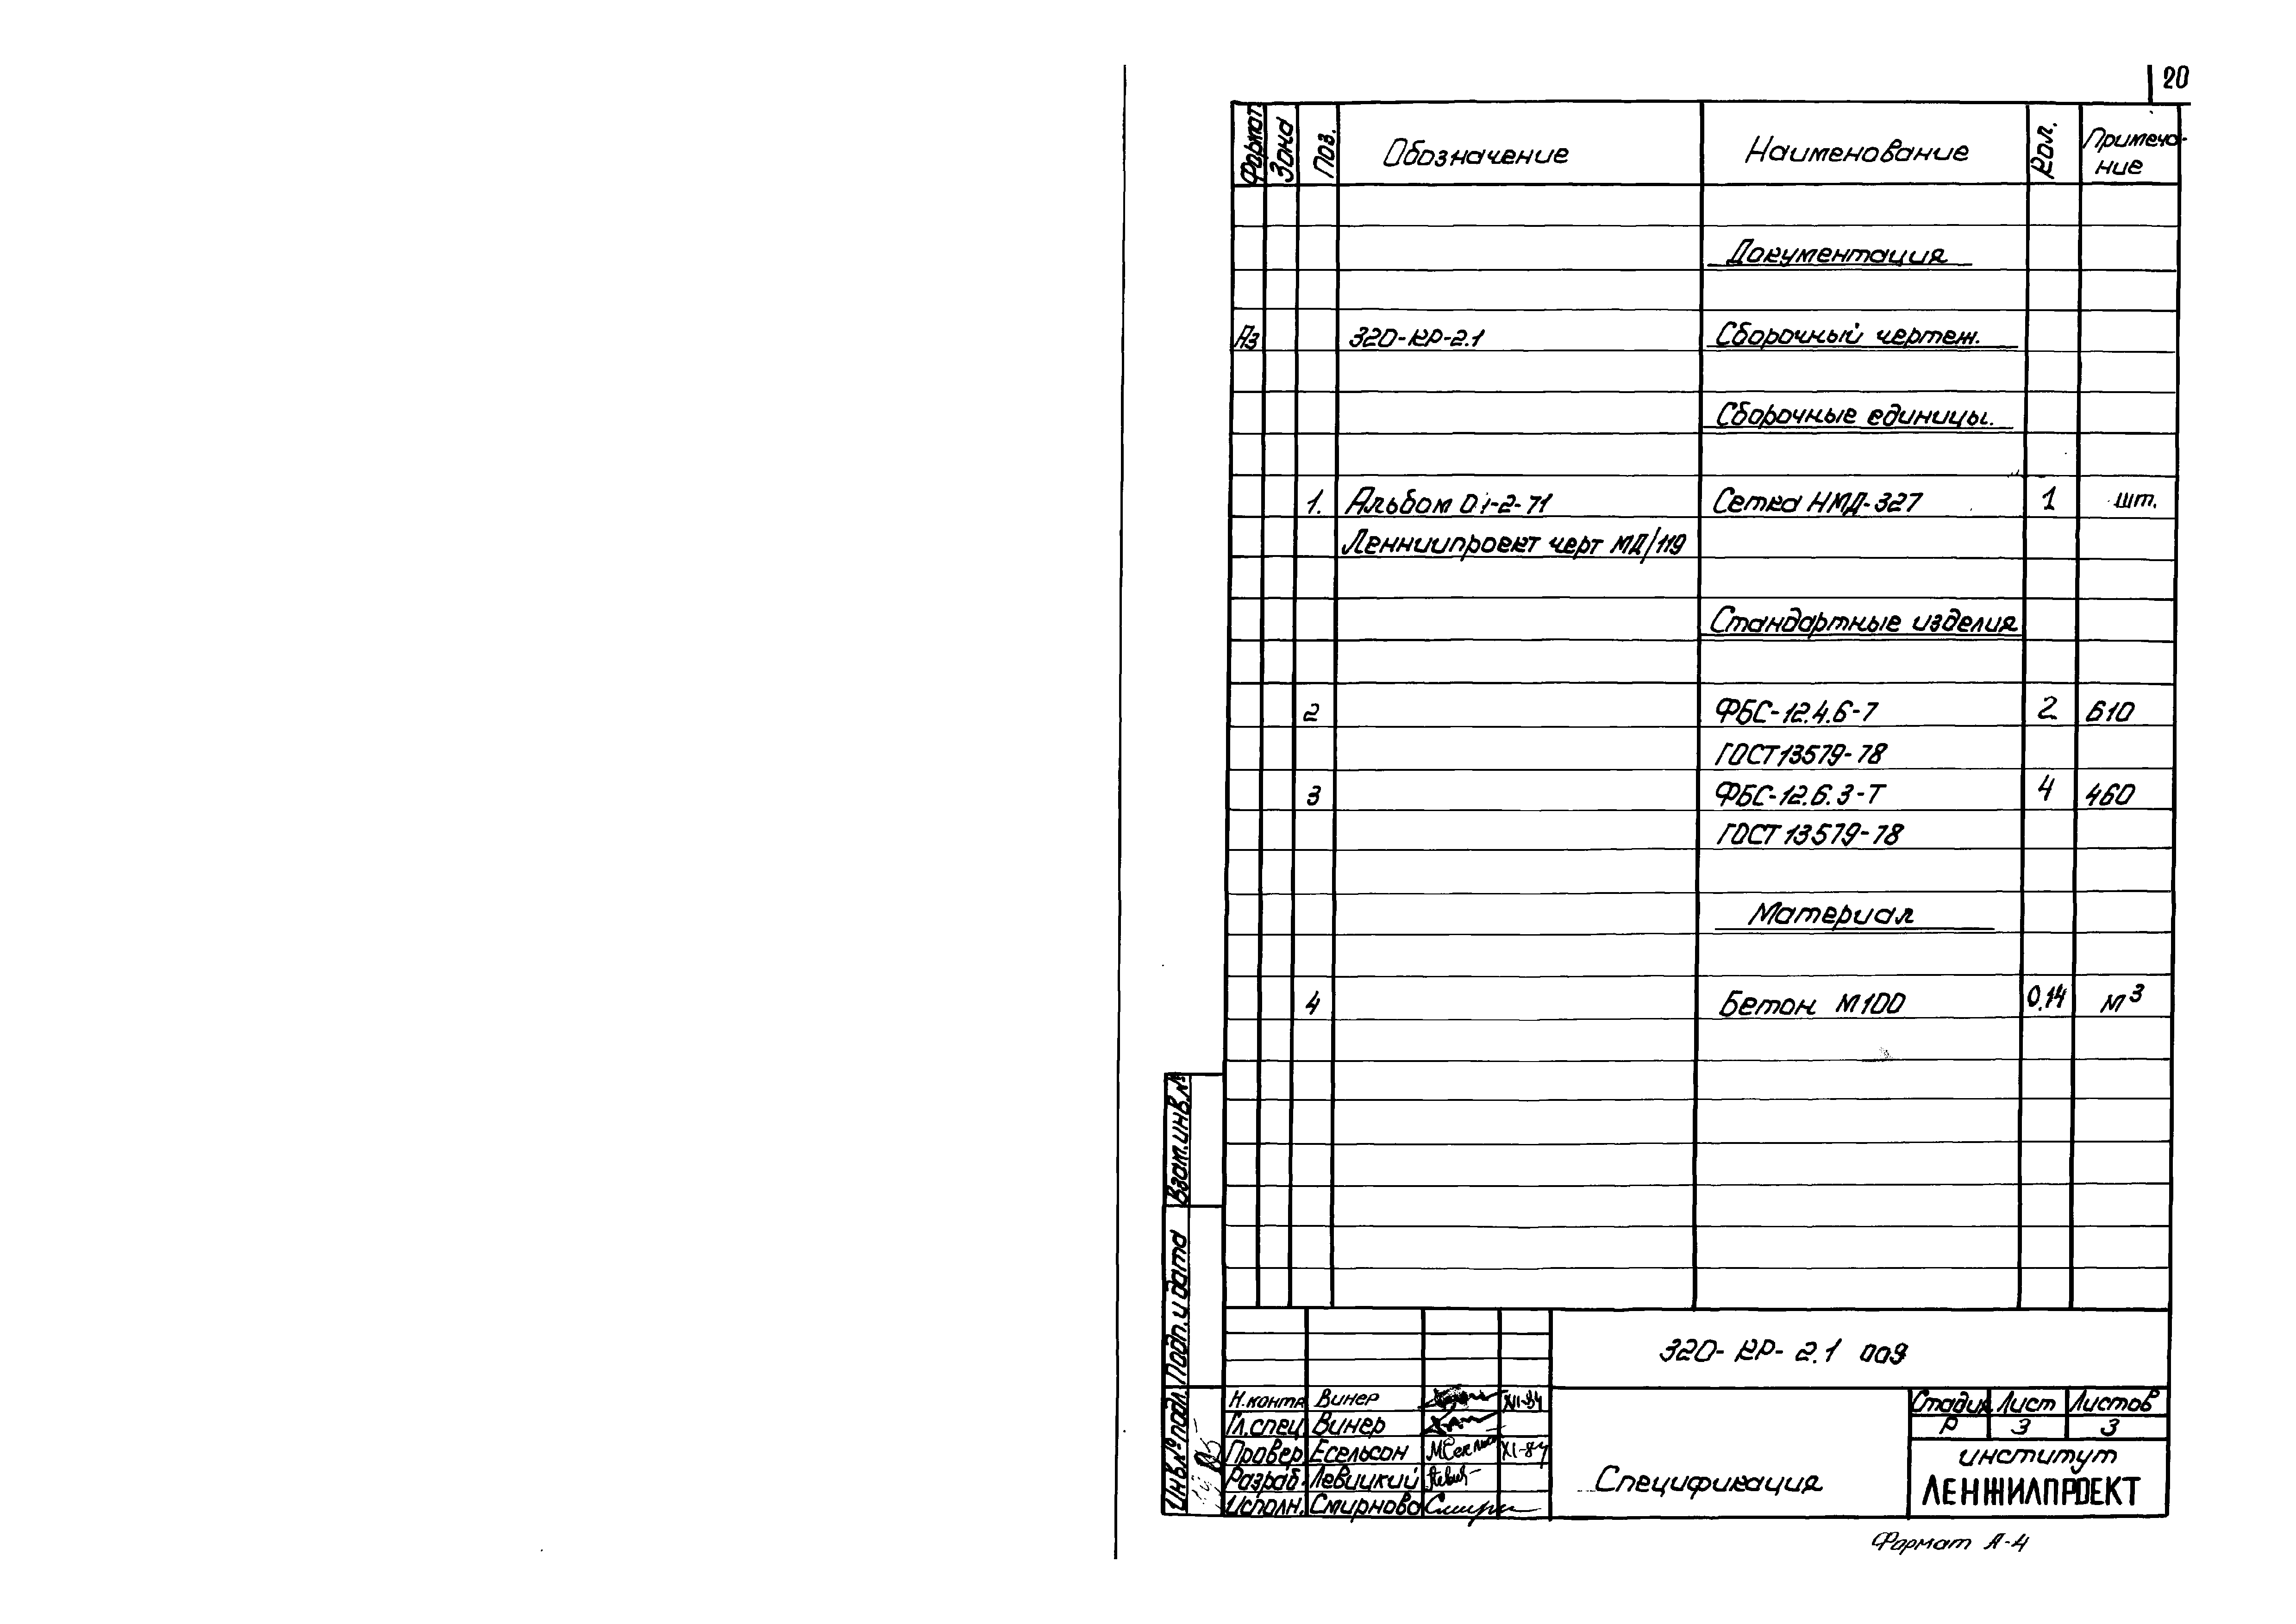 20
Формат Зона Поз. Обозначение Наименование Кол. Примеча-
ние
Документация
А3 320-КР-2.1 Сборочный чертеж.
Сборочные единицы.
1. Альбом 01-2-71 Сетка НМД-327 1 шт.
Ленниипроект черт МД/119
Стандартные изделия
2 ФБС-12.4.6-Т 2 610
ГОСТ 13579-78
3 ФБС-12.6.3-Т 4 460
ГОСТ 13579-78
Материал
4 Бетон М100 0,14 м3
Взам.инв.№
Подп. и дата
Инв.№ подл.
320-КР-2.1 009
Н.контр Винер XI-84
Гл.спец Винер
Провер Есельсон XI-84
Разраб. Левицкий
Исполн. Смирнова
Спецификация
Стадия Лист Листов
Р 3 3
институт
ЛЕНЖИЛПРОЕКТ
Формат А-4